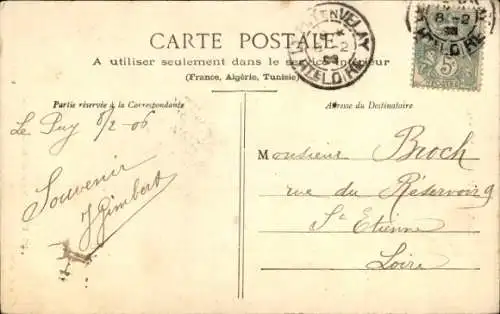 CARTE POSTALE
A utiliser seulement dans le service intérieur
(France, Algérie, Tunisie)
Partie réservée à la Correspondance
Adresse du Destinataire
Le Puy 8/2-06
Souvenir
J Gimbert
Monsieur Broch
rue du Réservoir 9
St Etienne
Loire
EN VELAY
8-2
HTE LOIRE
8-2
LOIRE
5c